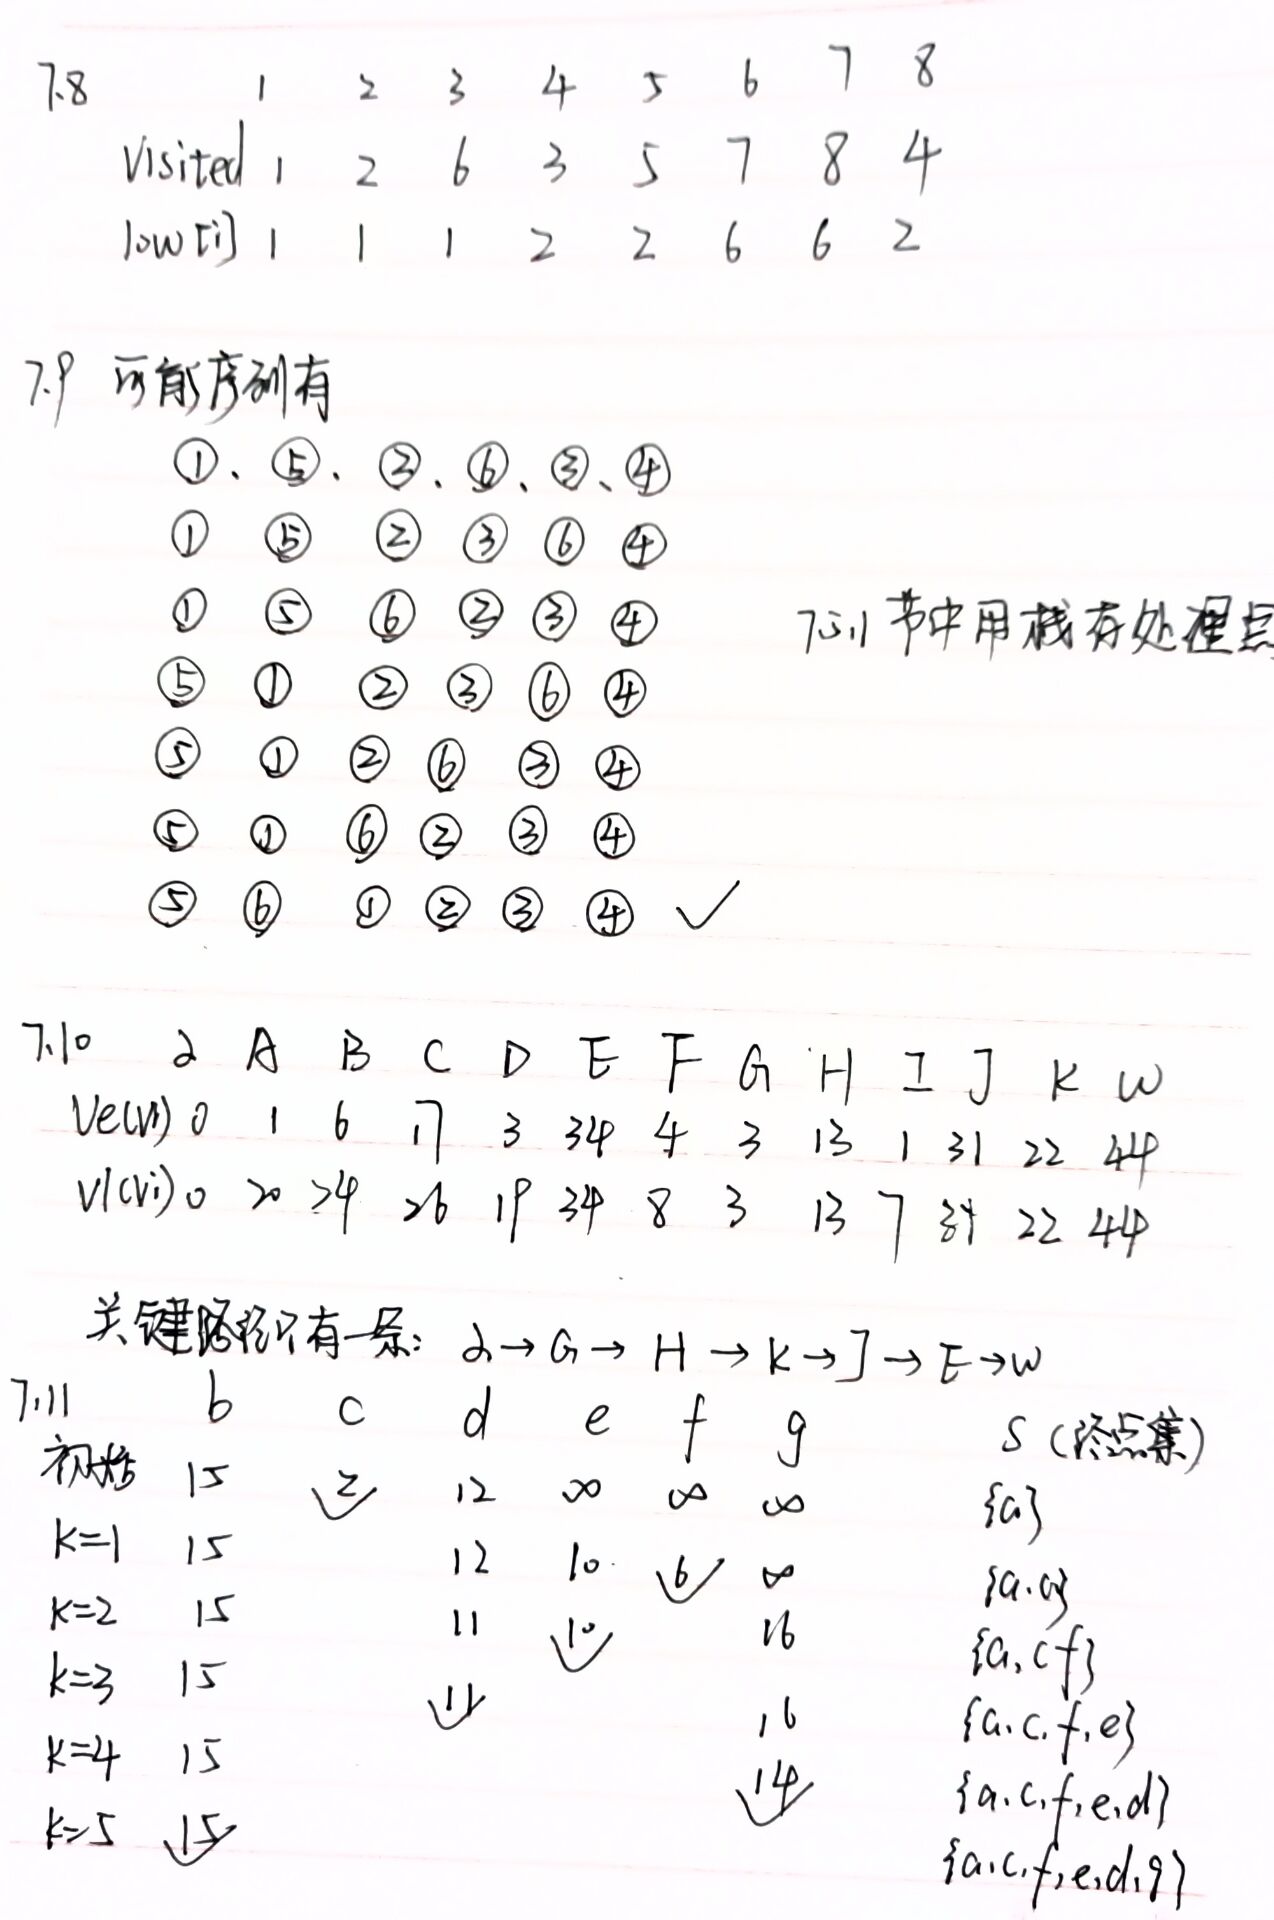 7.8 1 2 3 4 5 6 7 8
Visited 1 2 6 3 5 7 8 4
low[i] 1 1 1 2 2 6 6 2
7.9 可能序列有
①、⑤、③、⑥、③、④
① ⑤ ② ③ ⑥ ④
① ⑤ ⑥ ② ③ ④
7.5.1节中用栈存处理点
⑤ ① ② ③ ⑥ ④
⑤ ① ② ⑥ ③ ④
⑤ ① ⑥ ② ③ ④
⑤ ⑥ ① ② ③ ④ ✓
7.10 α A B C D E F G H I J K W
Ve(Vi) 0 1 6 17 3 34 4 3 13 1 31 22 44
Vl(Vi) 0 20 24 26 19 34 8 3 13 7 31 22 44
关键路径只有一条: α→G→H→K→J→E→W
7.11 b c d e f g S (终点集)
初始 15 2 12 ∞ ∞ ∞ {a}
K=1 15 12 10 6 ∞ {a.c}
K=2 15 11 10 16 {a,c f}
K=3 15 11 16 {a.c.f.e}
K=4 15 14 {a.c.f,e.d}
K=5 15 {a.c.f,e.d.g}